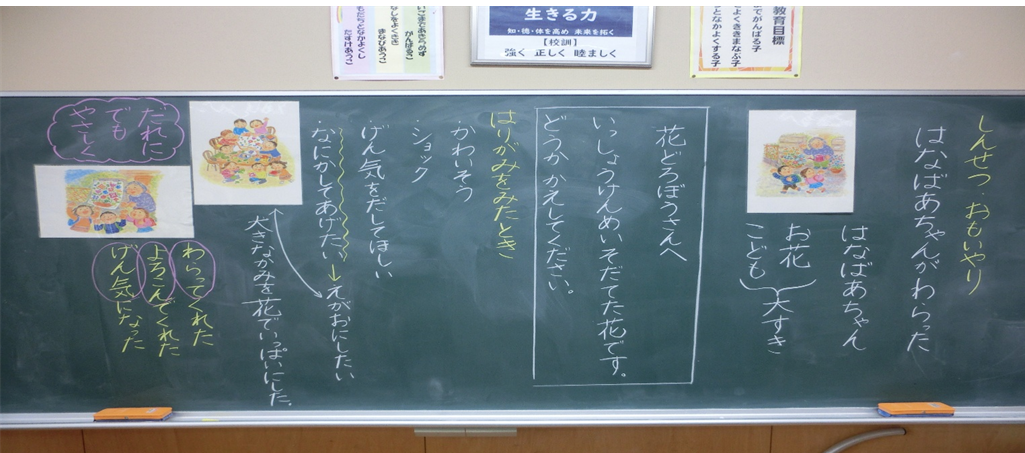 教育目標
でがんばる子
よくききまなぶ子
となかよくする子
生きる力
知・徳・体を高め 未来を拓く
【校訓】
強く 正しく 睦ましく
いこまであきらめず
がんばるこ
なしをよくきき
まなびあうこ
となかよくし
たすけあうこ
しんせつ・おもいやり
はなばあちゃんがわらった
はなばあちゃん
お花
こども
大すき
花どろぼうさんへ
いっしょうけんめいそだてた花です。
どうか かえしてください。
はりがみをみたとき
・かわいそう
・ショック
・げん気をだしてほしい
・なにかしてあげたい→えがおにしたい
大きなかみを花でいっぱいにした。
わらってくれた
よろこんでくれた
げん気になった
だれに
でも
やさしく